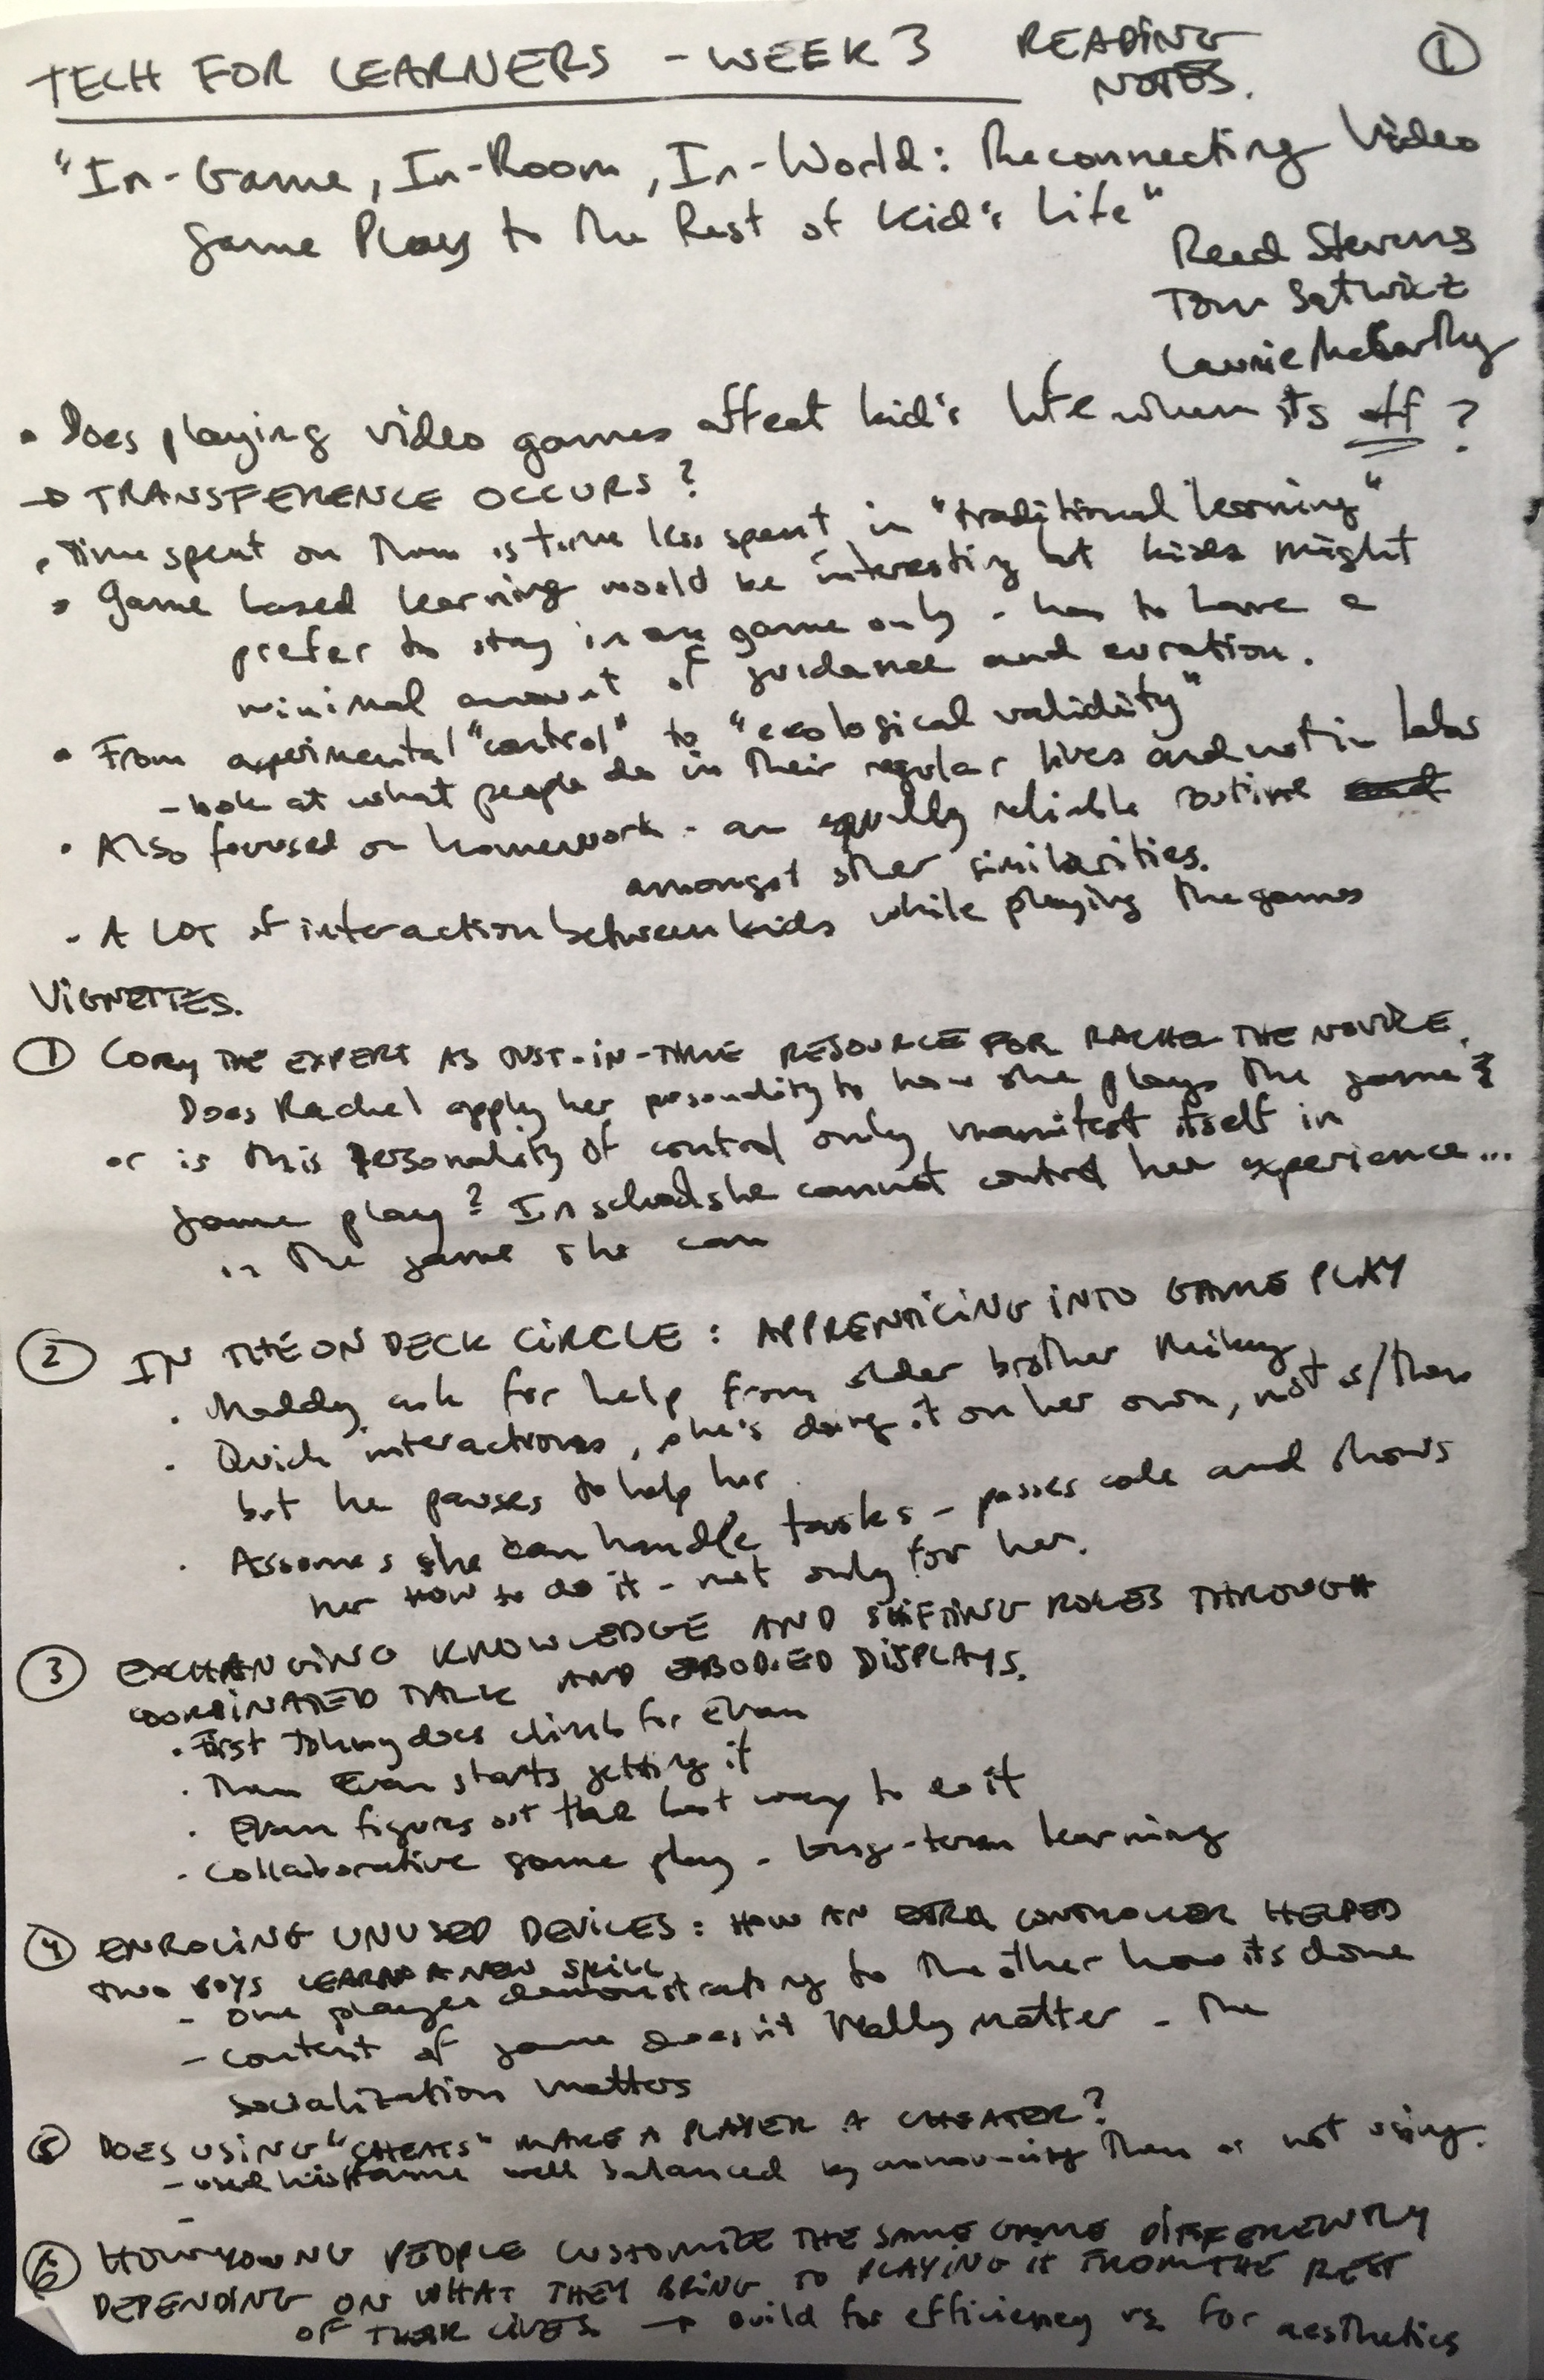 TECH FOR LEARNERS - WEEK 3 READING NOTES.
①
"In-Game, In-Room, In-World: Reconnecting Video
Game Play to the Rest of Kid's Life"
Reed Stevens
Tom Satwicz
Laurie McCarthy
• Does playing video games affect kid's life when its off?
→ TRANSFERENCE OCCURS?
• Time spent on them is time less spent in "traditional learning"
• Game based learning would be interesting but kids might
prefer to stay in game only - has to have a
minimal amount of guidance and curation.
• From experimental "control" to "ecological validity"
- look at what people do in their regular lives and not in labs
• Also focused on homework - an equally reliable routine
amongst other similarities.
• A LOT of interaction between kids while playing the games
VIGNETTES.
① CORY THE EXPERT AS JUST-IN-TIME RESOURCE FOR RACHEL THE NOVICE.
Does Rachel apply her personality to how she plays the game?
or is this personality of control only manifest itself in
game play? In school she cannot control her experience...
in the game she can
② IN THE ON DECK CIRCLE: APPRENTICING INTO GAME PLAY
• Maddy ask for help from older brother Mikey
• Quick interactions, she's doing it on her own, not w/ them
but he pauses to help her.
• Assumes she can handle tasks - passes code and shows
her HOW to do it - not only for her.
③ EXCHANGING KNOWLEDGE AND SHIFTING ROLES THROUGH
COORDINATED TALK AND EMBODIED DISPLAYS.
• First Johnny does climb for Evan
• Then Evan starts getting it
• Evan figures out the best way to do it
• Collaborative game play - long-term learning
④ ENROLING UNUSED DEVICES: HOW AN EXTRA CONTROLLER HELPED
TWO BOYS LEARN A NEW SKILL.
- One player demonstrating to the other how its done
- Content of game doesn't really matter - the
socialization matters
⑤ DOES USING "CHEATS" MAKE A PLAYER A CHEATER?
- used well balanced by announcing them or not using.
-
⑥ HOW YOUNG PEOPLE CUSTOMIZE THE SAME GAME DIFFERENTLY
DEPENDING ON WHAT THEY BRING TO PLAYING IT FROM THE REST
OF THEIR LIVES → build for efficiency vs for aesthetics